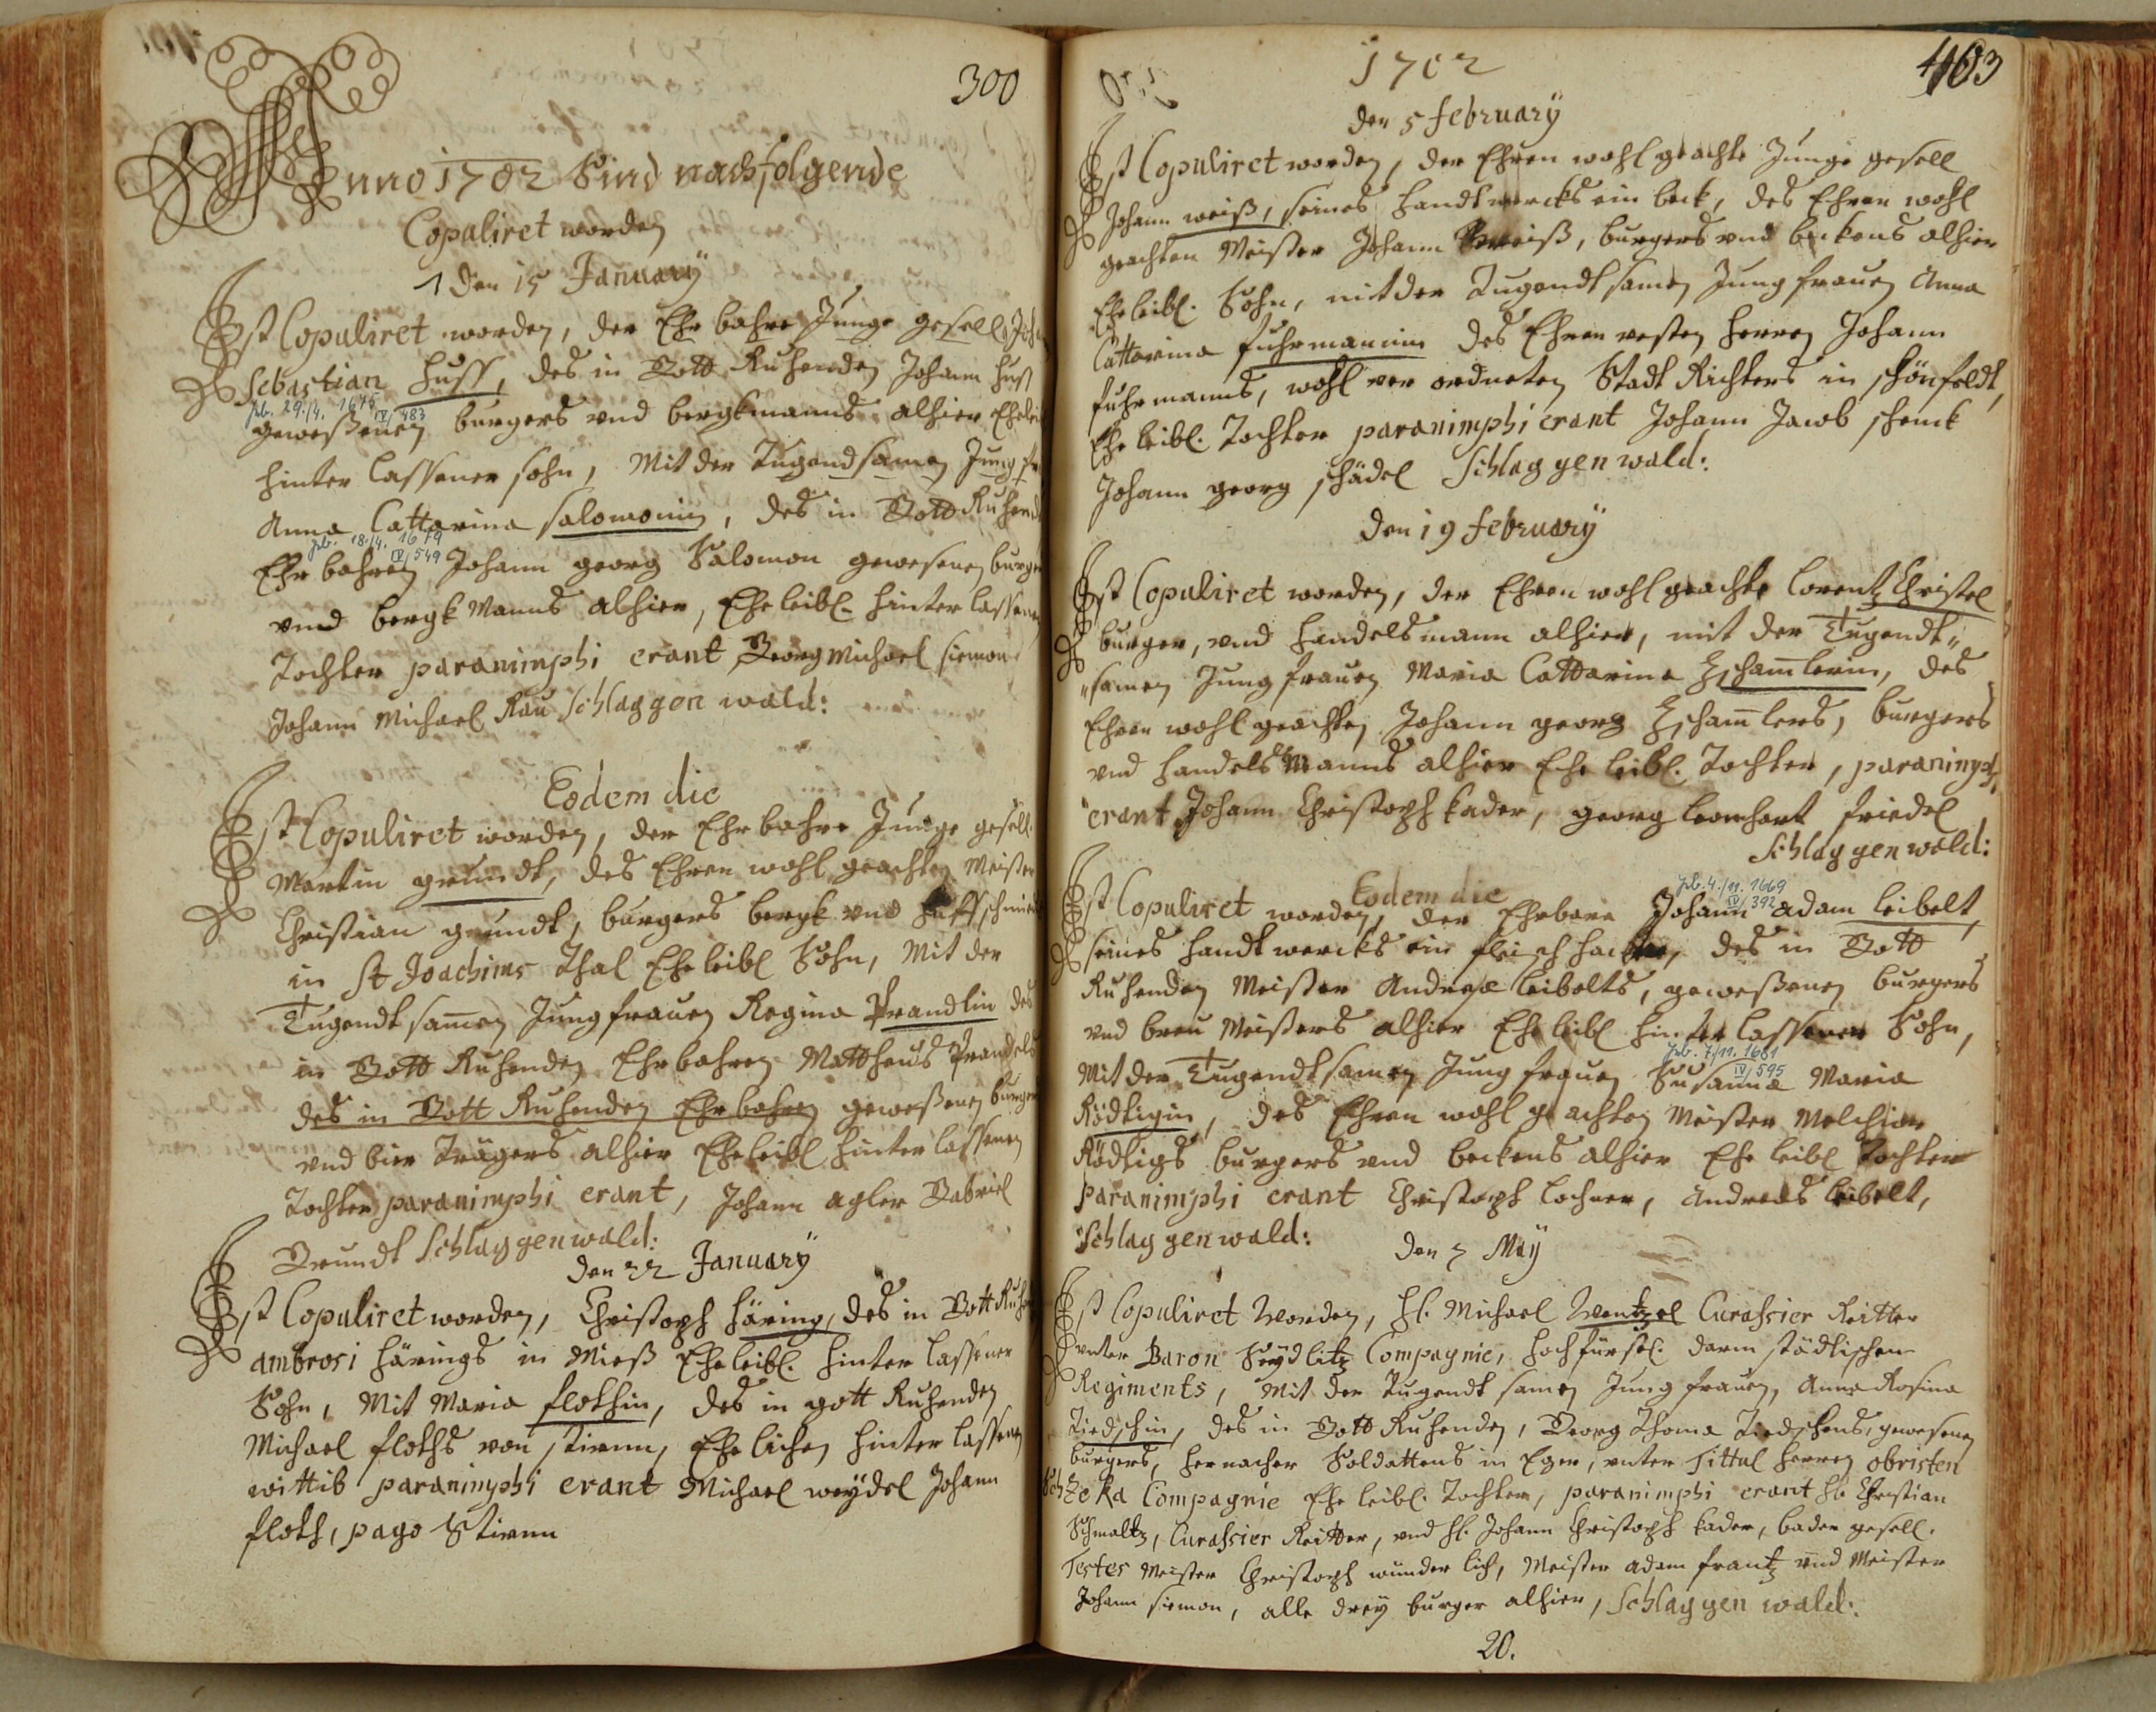 300
Anno 1702 Sind nachfolgende
Copuliret worden
1 Den 15 January
Ist Copuliret worden, der Ehrbahre Junge gesell
Sebastian Huss, des in Gott Ruhenden Johann Huss
geb. 29./4. 1675 IV/483
geweßenen burgers vnd bergkmanns alhier Ehelei
hinter lassener sohn, Mit der Tugendsamen Jungfr
Anna Cattarina Salomonin, des in Gott Ruhend
geb. 18./4. 1679 IV/549
Ehrbahren Johann georg Salomon gewesenen burge
vnnd bergk Manns alhier, Eheleibl. hinter lassenen
Tochter paranimphi erant Georg Michael Siemon
Johann Michael Rau Schlaggenwald:
Eodem die
Ist Copuliret worden, der Ehrbahre Junge gesell
Martin grundt, des Ehren wohl geachten Meister
Christian grundt, burgers bergk vnd Huffschmied
in St Joachims Thal Eheleibl Sohn, Mit der
Tugendtsamen Jungfrauen Regina Prandlin des
in Gott Ruhenden Ehrbahren Mattheus Prandels
des in Gott Ruhenden Ehrbahren geweßenen burger
vnd bier Trägers alhier Eheleibl hinter lassenen
Tochter paranimphi erant, Johann agler Gabriel
Grundt Schlaggenwald:
Den 22 January
Ist Copuliret worden, Christoph Häring, des in Gott Ruh
Ambrosi Härings in Mieß Eheleibl. hinter lassener
Sohn, Mit Maria Flothin, des in gott Ruhenden
Michael Floths von Stirnn, Ehelichen hinter lassenen
wittib paranimphi erant Michael weydel Johann
Floth, pago Stirnn
1702
403
Den 5 February
Ist Copuliret worden, der Ehren wohlgeachte Junge gesell
Johann weiß, seines Handtwercks ein beck, des Ehren wohl
geachten Meister Johann weiß, burgers vnd beckens alhier
Eheleibl. Sohn, mit der Tugendtsamen Jungfrauen Anna
Cattarina Fuhrmannin des Ehren vesten Herren Johann
Fuhrmanns, wohl ver ordneten Stadt Richters in Schönfeldt,
Eheleibl. Tochter paranimphi erant Johann Jacob Schenk
Johann georg Schädel Schlaggenwald:
Den 19 February
Ist Copuliret worden, der Ehren wohlgeachte Lorentz Christel
burger, vnd Handelsmann alhier, mit der Tugendt„
„samen Jungfrauen Maria Cattarina Zschamlerin, des
Ehren wohl geachten Johann georg Zschamlers, burgers
vnd Handels Manns alhier Eheleibl. Tochter, paranimph,
erant Johann Christoph Kader, georg Leonhart Friedel
Schlaggenwald:
Eodem die
geb. 4./11. 1669 IV/392
Ist Copuliret worden, der Ehrbare Johann Adam Leibelt,
seines Handtwercks ein fleischhacker, des in Gott
Ruhenden Meister Andreæ Leibelts, geweßenen burgers
vnd breu Meisters alhier Eheleibl hinter lassener Sohn,
geb. 7./11. 1681 IV/595
Mit der Tugendtsamen Jungfrauen Susanna Maria
Rödtigin, des Ehren wohl geachten Meister Melchior
Rödtigs burgers vnd beckens alhier Eheleibl Tochter
paranimphi erant Christoph Lochner, Andreas Leibelt,
Schlaggenwald:
Den 7 May
Ist Copuliret Worden, H. Michael Wentzel Curassier Reitter
vnter Baron Seydlitz Compagnie, Hochfürstl. Darmstädtischen
Regiments, Mit der Tugendtsamen Jungfrauen, Anna Rosina
Tiedschin, des in Gott Ruhenden, Georg Thoma Tiedschens, gewesenen
burgers, Hernacher Soldattens in Eger, vnter Tittul Herren Obristen
Zeka Compagnie Eheleibl. Tochter, paranimphi erant H. Christian
Schmaltz, Curassier Reitter, vnd H. Johann Christoph Kader, bader gesell.
Testes Meister Christoph wunderlich, Meister Adam Frantz vnd Meister
Johann Siemon, alle drey burger alhier, Schlaggenwald:
20.